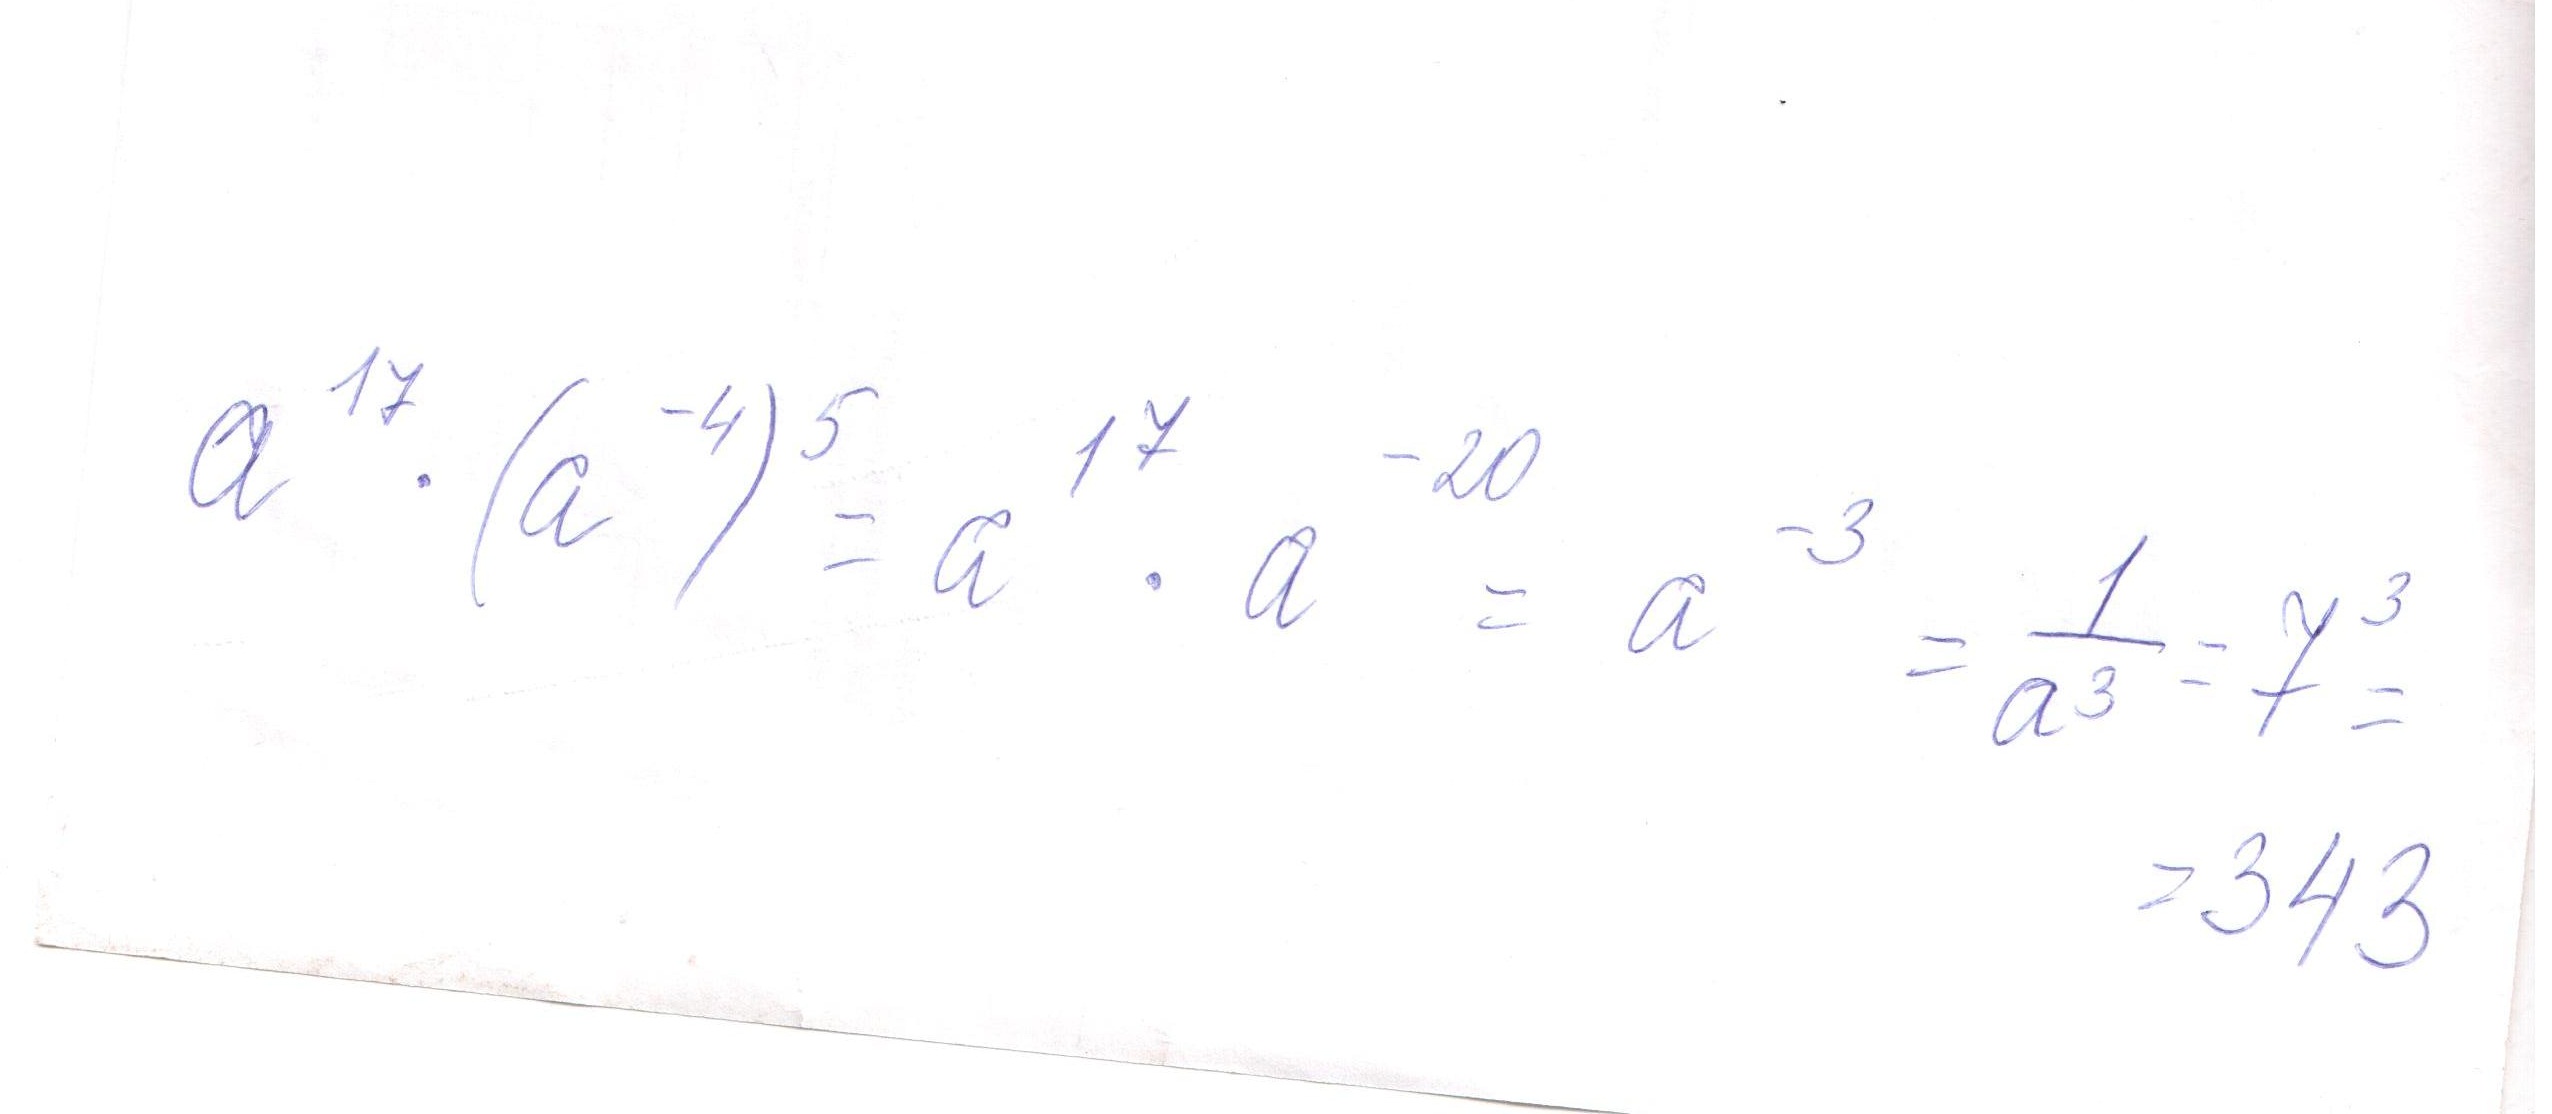 a¹⁷ · (a⁻⁴)⁵ = a¹⁷ · a⁻²⁰ = a⁻³ = 1/a³ = 7³ =
= 343